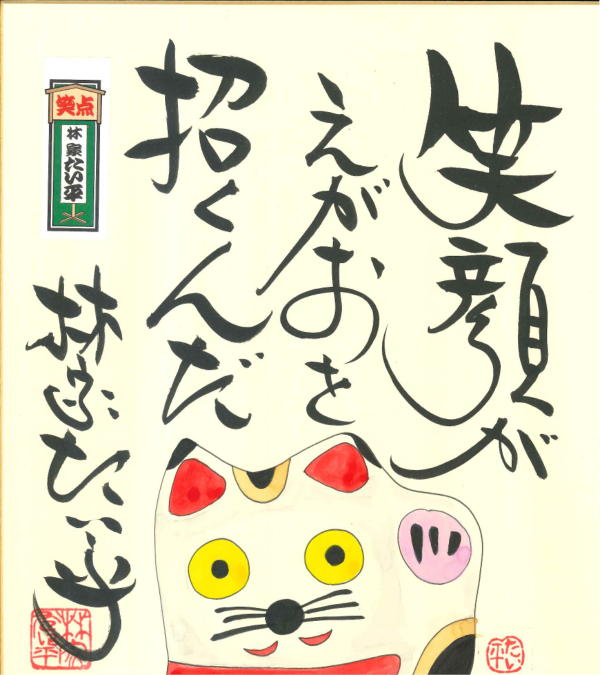 笑顔が
えがおを
招くんだ
笑点
林家たい平
林家たい平
たい平